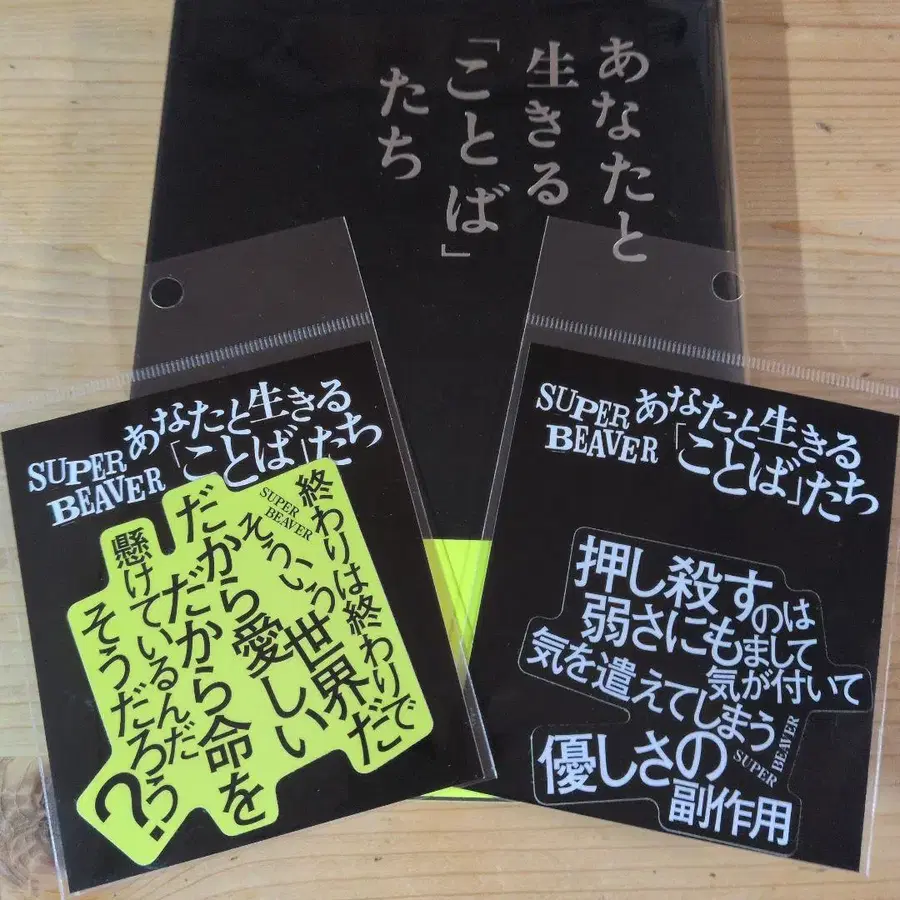 あなたと
生きる
「ことば」
たち
SUPER
BEAVER
あなたと生きる
「ことば」たち
終わりは終わりで
SUPER
BEAVER
そういう世界だ
だから愛しい
だから命を
懸けているんだ
そうだろう?
SUPER
BEAVER
あなたと生きる
「ことば」たち
押し殺すのは
弱さにもまして
気が付いて
気を遣えてしまう
優しさの
SUPER
BEAVER
副作用